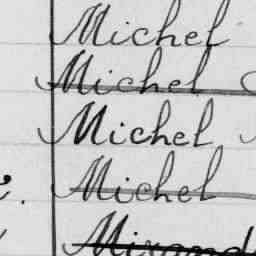 Michel
Michel
Michel
Michel